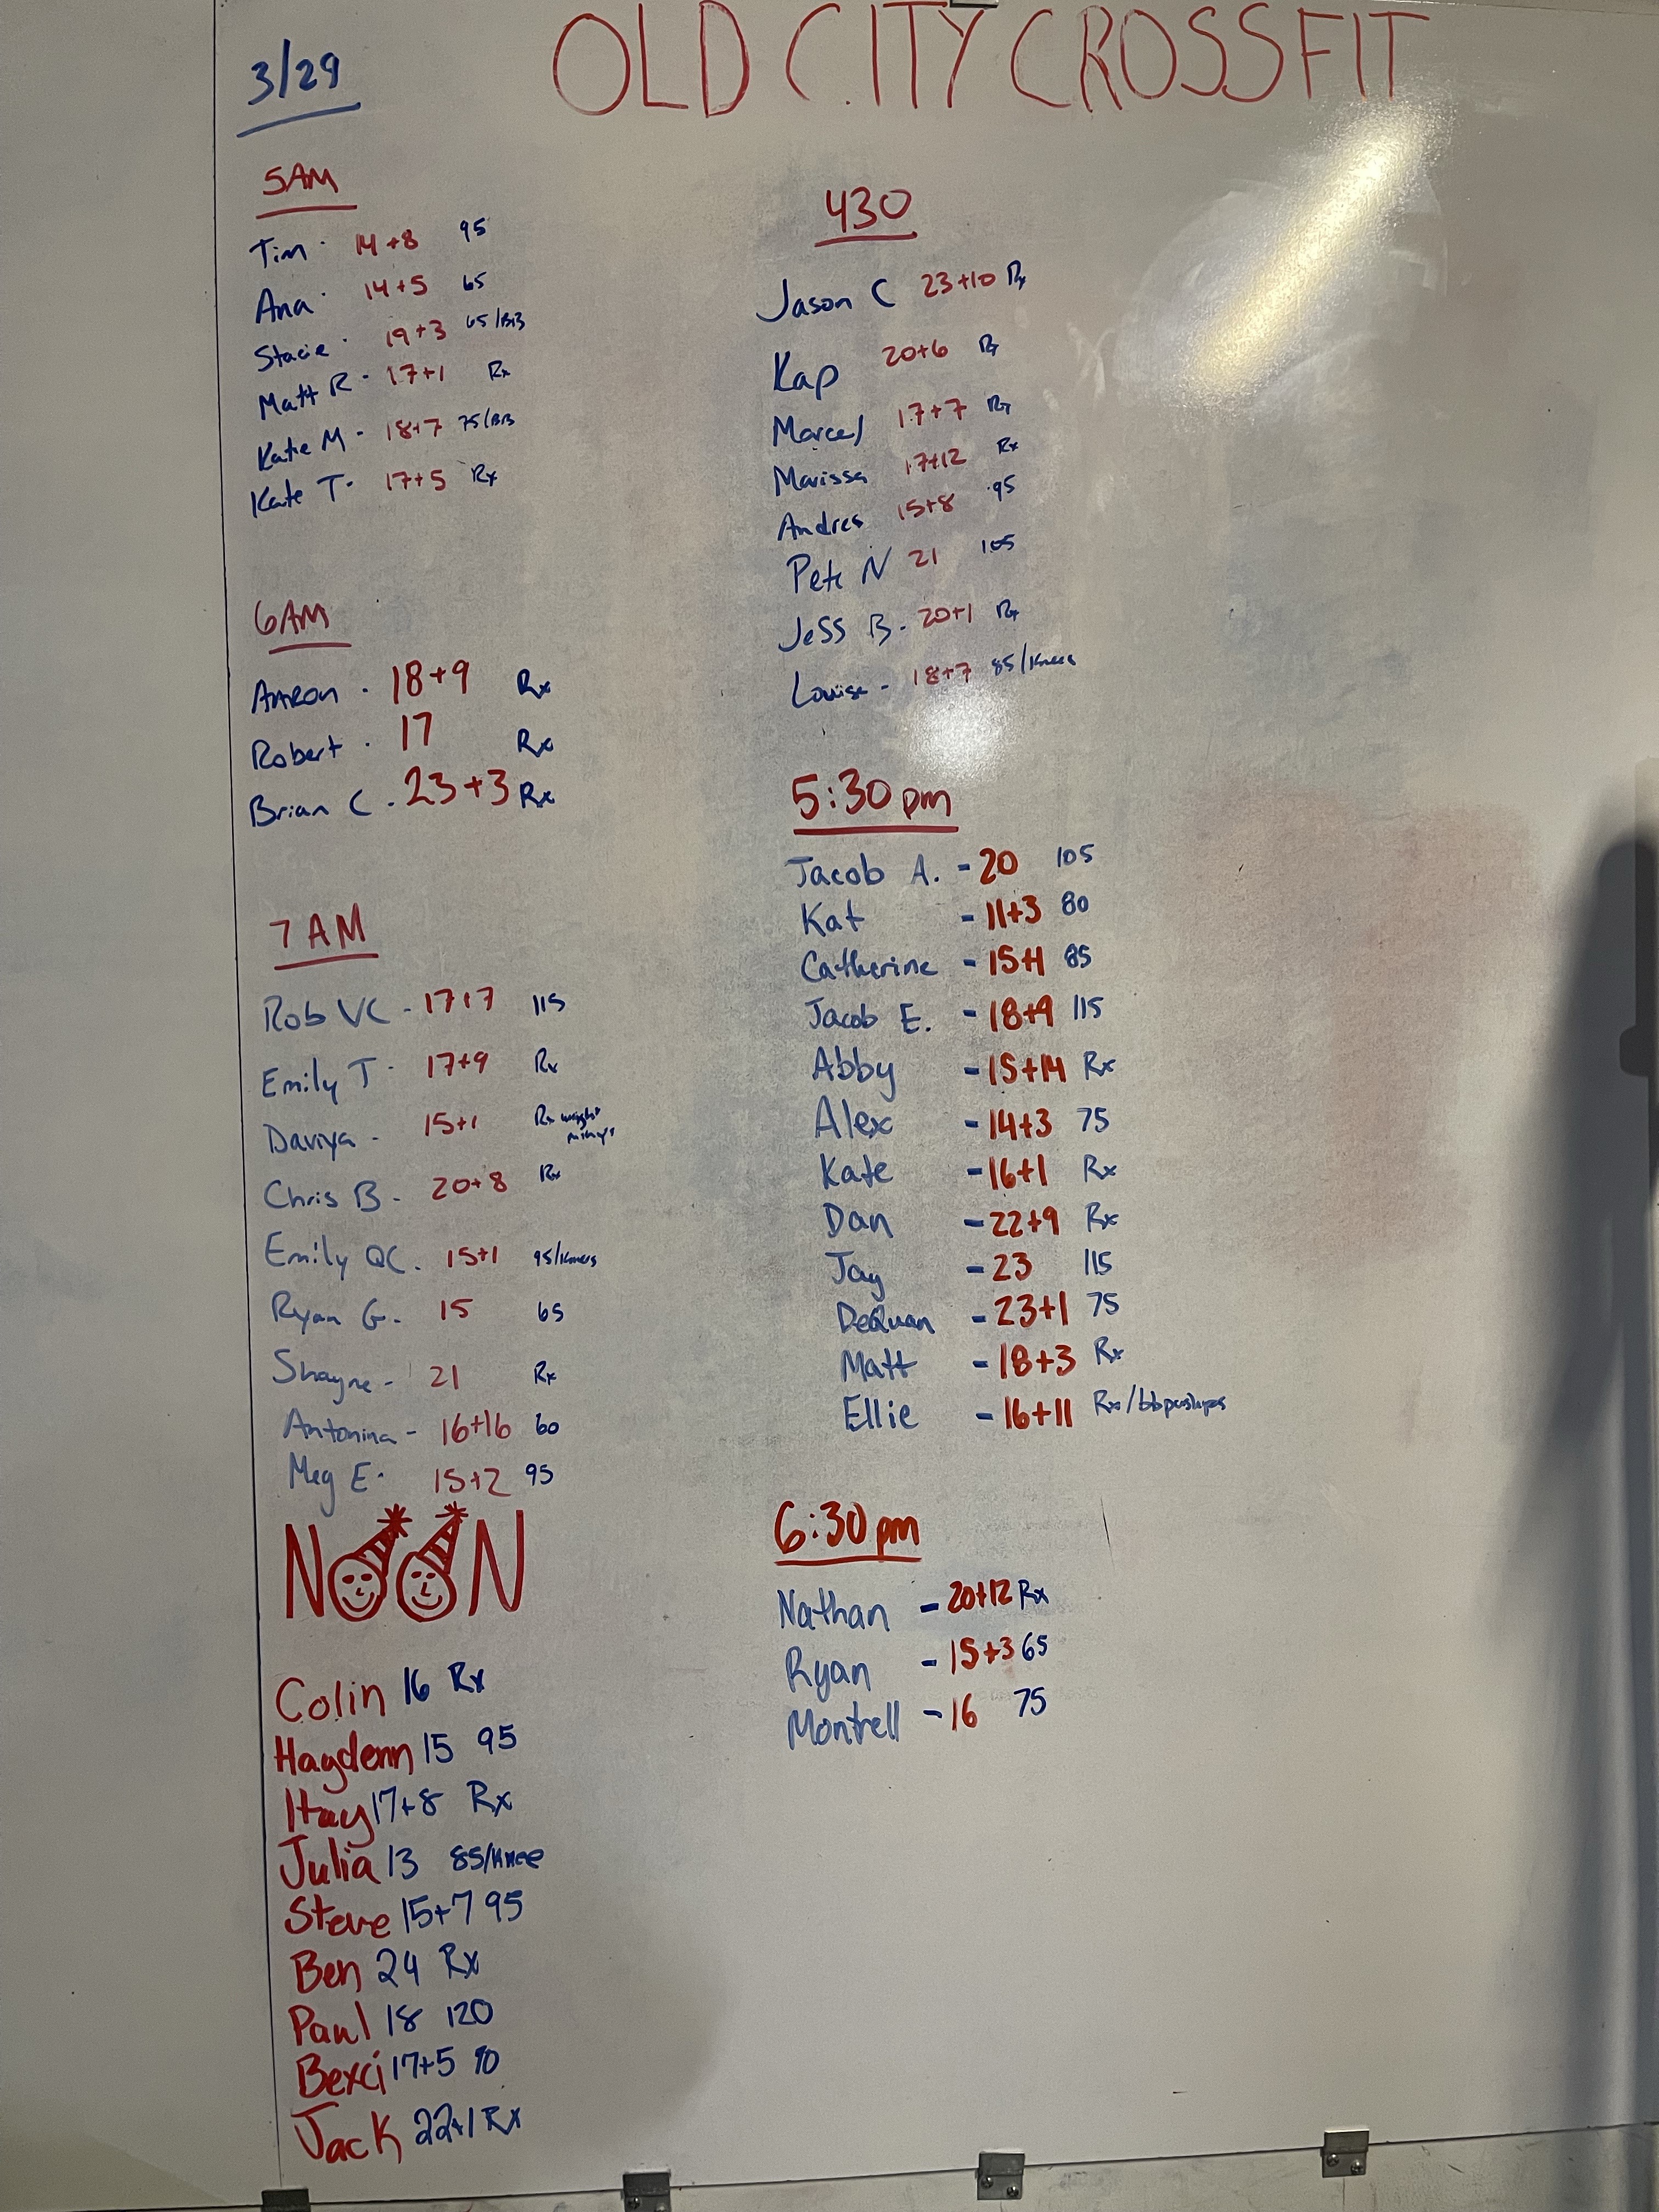 OLD CITY CROSSFIT
3/29
5AM
Tim - 14+8 95
Ana - 14+5 65
Stacie - 19+3 65/BB
Matt R - 17+1 Rx
Katie M - 18+7 75/BB
Kate T - 17+5 Rx
6AM
Aaron - 18+9 Rx
Robert - 17 Rx
Brian C - 23+3 Rx
7AM
Rob VC - 17+7 115
Emily T - 17+9 Rx
Daviya - 15+1 Rx weight
Chris B - 20+8 Rx
Emily QC. 15+1 95/knees
Ryan G. 15 65
Shayne - 21 Rx
Antonina - 16+16 60
Meg E - 15+2 95
NOON
Colin 16 Rx
Haydenn 15 95
Itay 17+8 Rx
Julia 13 85/knee
Steve 15+7 95
Ben 24 Rx
Paul 18 120
Bexci 17+5 90
Jack 22+1 Rx
430
Jason C 23+10 Rx
Kap 20+6 Rx
Marcel 17+7 Rx
Marissa 17+12 Rx
Andres 15+8 95
Pete N 21 105
Jess B - 20+1 Rx
Louise - 18+7 85/knees
5:30pm
Jacob A. - 20 105
Kat - 11+3 80
Catherine - 15+1 85
Jacob E. - 18+9 115
Abby - 15+14 Rx
Alex - 14+3 75
Kate - 16+1 Rx
Dan - 22+9 Rx
Jay - 23 115
DeQuan - 23+1 75
Matt - 18+3 Rx
Ellie - 16+11 Rx/bbpushups
6:30pm
Nathan - 20+12 Rx
Ryan - 15+3 65
Montrell - 16 75